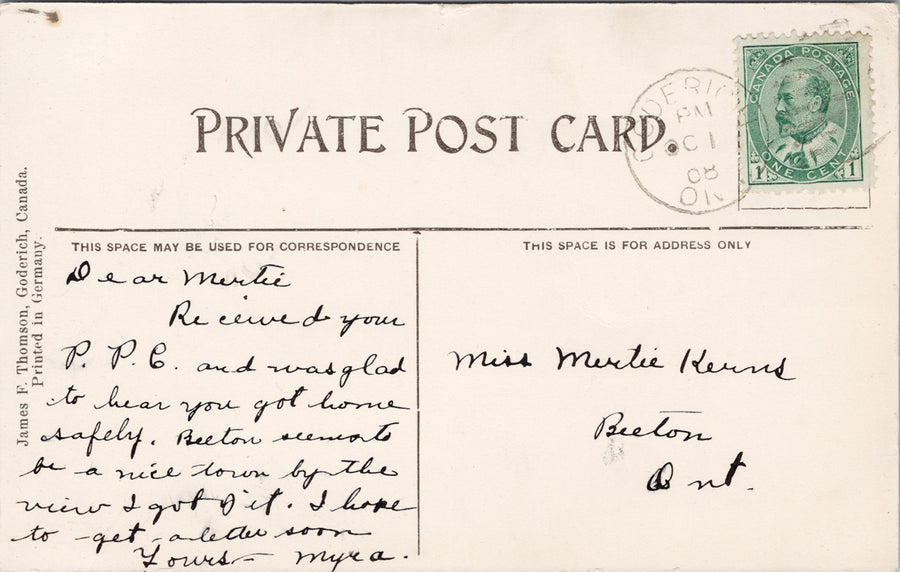 PRIVATE POST CARD.
GODERICH
PM
OC 1
08
ON
CANADA POSTAGE
ONE CENT
1 1
James F. Thomson, Goderich, Canada.
Printed in Germany.
THIS SPACE MAY BE USED FOR CORRESPONDENCE
Dear Mertie
Received your
P. P. C. and was glad
to hear you got home
safely. Beeton seems to
be a nice town by the
view I got of it. I hope
to get a letter soon
Yours – Myra.
THIS SPACE IS FOR ADDRESS ONLY
Miss Mertie Kerns
Beeton
Ont.